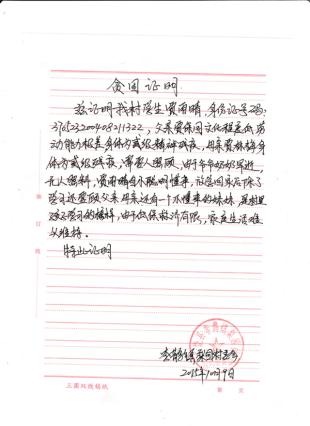 贫困证明
兹证明我村学生费雨晴，身份证号码：
370523200408211322，父亲费保国文化程度低劳
动能力极差身体为贰级精神残疾，母亲费林梅身
体为贰级残疾，需要人照顾，由于爷爷奶奶年迈，
无人照料，费雨晴自小聪明懂事，放学回家后除了
学习还要照顾父亲母亲还有一个不懂事的妹妹，是村里
孩子学习的榜样，由于低保救济有限，家庭生活难
以维持。
特此证明
村委会
2015年10月9日
三圆双线稿纸
第 页